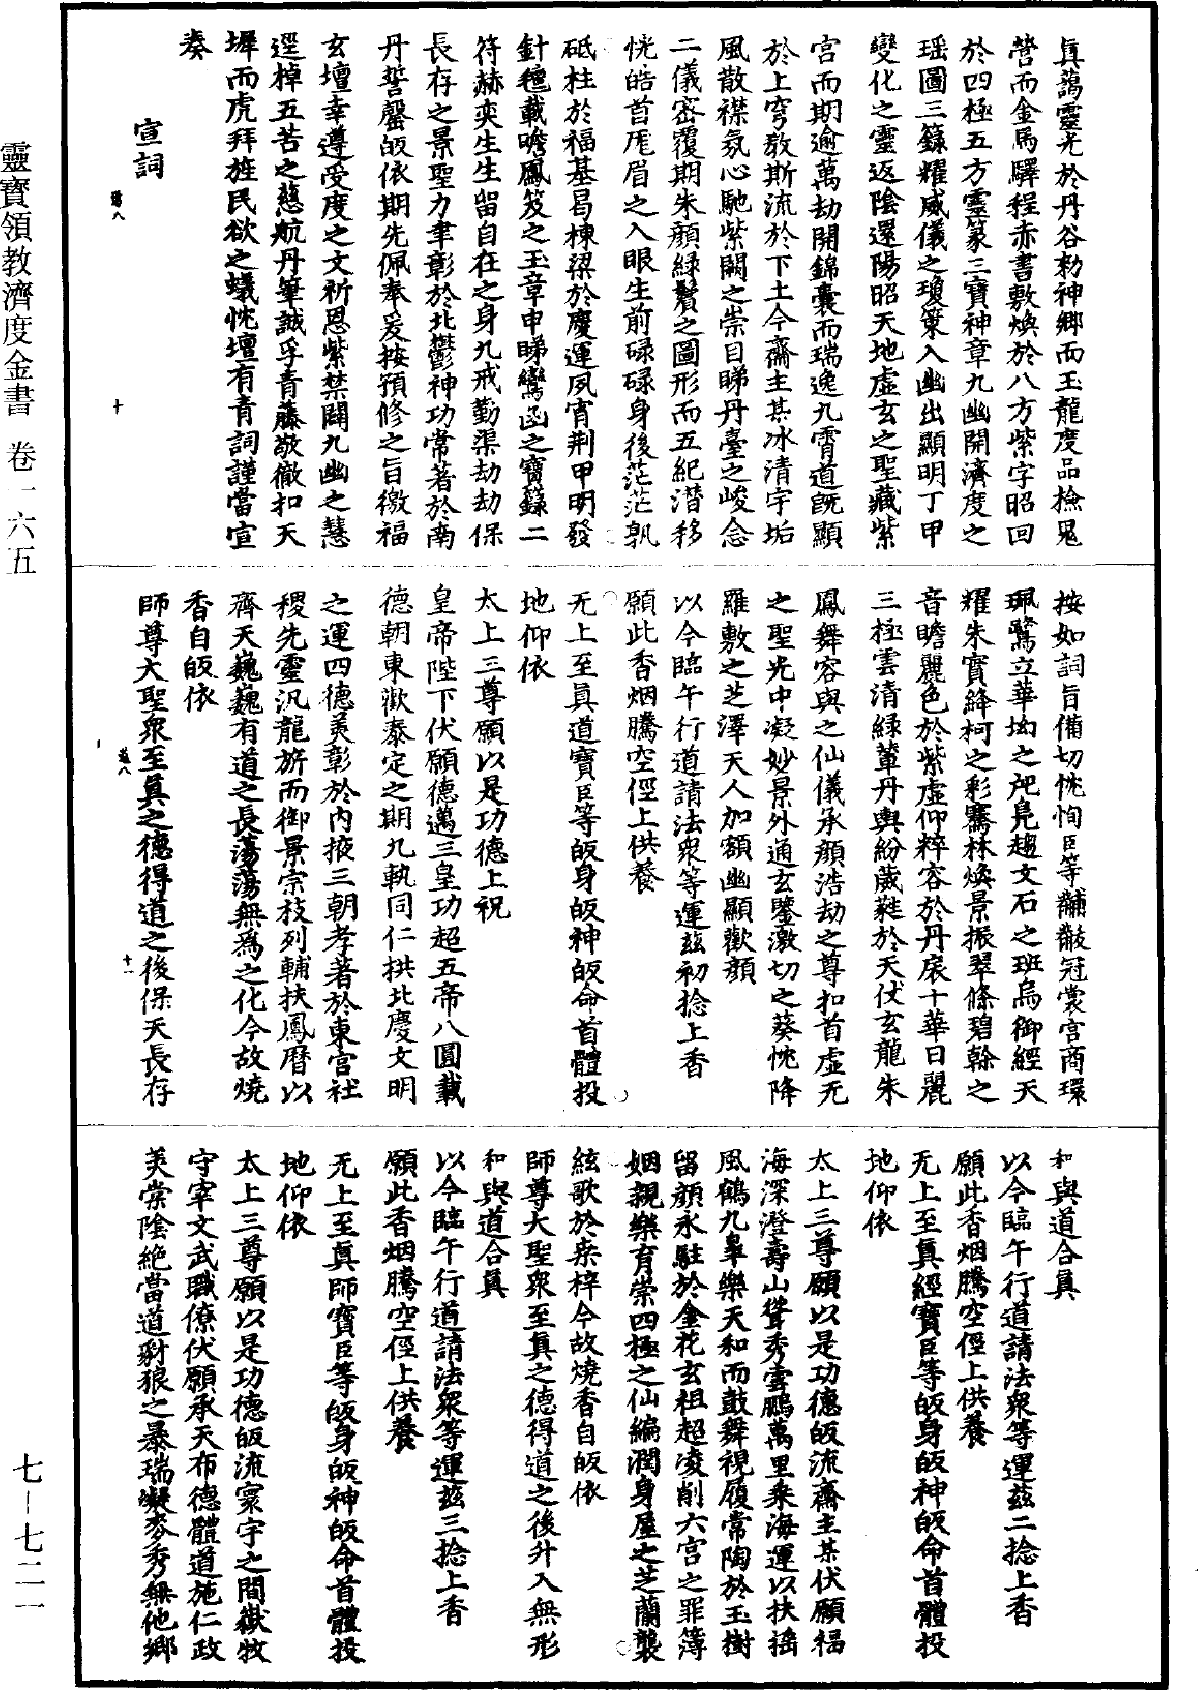 眞藹靈光於丹谷勑神鄉而玉龍度品撿鬼
營而金馬驛程赤書敷煥於八方紫字昭回
於四極五方靈篆三寶神章九幽開濟度之
瑶圖三籙耀威儀之瓊策入幽出顯明丁甲
變化之靈返陰還陽昭天地虛玄之聖藏紫
宮而期逾萬劫開錦囊而瑞逸九霄道旣顯
於上穹教斯流於下土今齋主某冰清宇垢
風散襟氛心馳紫闕之崇目睇丹臺之峻念
二儀密覆期朱顔綠鬢之圖形而五紀潜移
恍皓首厖眉之入眼生前碌碌身後茫茫孰
砥柱於福基曷棟梁於慶運夙宵荆甲明發
針氊載瞻鳳笈之玉章申睇鸞函之寶籙二
符赫奕生生留自在之身九戒勤渠劫劫保
長存之景聖力聿彰於北鬱神功常著於南
丹誓罄皈依期先佩奉爰按預修之旨徼福
玄壇幸遵受度之文祈恩紫禁闢九幽之慧
逕棹五苦之慈航丹筆誠孚青藤敬徹扣天
墀而虎拜旌民欲之蟻忱壇有青詞謹當宣
奏
宣詞
十
按如詞旨備切忱恂臣等黼黻冠裳宮商環
珮鷺立華坳之𫠦鳬趨文石之班烏御經天
耀朱實絳柯之彩鶱林煥景振翠條碧榦之
音瞻麗色於紫虛仰粹容於丹扆十華日麗
三極雲清綠軰丹輿紛葳蕤於天仗玄龍朱
鳳舞容與之仙儀承顔浩劫之尊扣首虛无
之聖光中凝妙景外通玄鑒激切之葵忱降
羅敷之芝澤天人加額幽顯歡顔
以今臨午行道請法衆等運茲初捻上香
願此香烟騰空徑上供養
无上至眞道寶臣等皈身皈神皈命首體投
地仰依
太上三尊願以是功德上祝
皇帝陛下伏願德邁三皇功超五帝八圓載
德朝東歡泰定之期九軌同仁拱北慶文明
之運四德美彰於內掖三朝孝著於東宮社
稷先靈汎龍旂而御景宗枝列輔扶鳳曆以
齊天巍巍有道之長蕩蕩無爲之化今故燒
香自皈依
師尊大聖衆至眞之德得道之後保天長存
十一
和與道合眞
以今臨午行道請法衆等運茲二捻上香
願此香烟騰空徑上供養
无上至眞經寶臣等皈身皈神皈命首體投
地仰依
太上三尊願以是功德皈流齋主某伏願福
海深澄壽山聳秀雲鵬萬里乘海運以扶搖
風鶴九臯樂天和而鼓舞視履常陶於玉樹
留顔永駐於金花玄祖超凌削六宮之罪簿
姻親樂育崇四極之仙編潤身屋之芝蘭襲
絃歌於桒梓今故燒香自皈依
師尊大聖衆至眞之德得道之後升入無形
和與道合眞
以今臨午行道請法衆等運茲三捻上香
願此香烟騰空徑上供養
无上至眞師寶臣等皈身皈神皈命首體投
地仰依
太上三尊願以是功德皈流寰宇之間嶽牧
守宰文武職僚伏願承天布德體道施仁政
美棠陰絶當道豺狼之暴瑞凝麥秀無他鄉
靈寶領教濟度金書 卷一六五
七—七二一